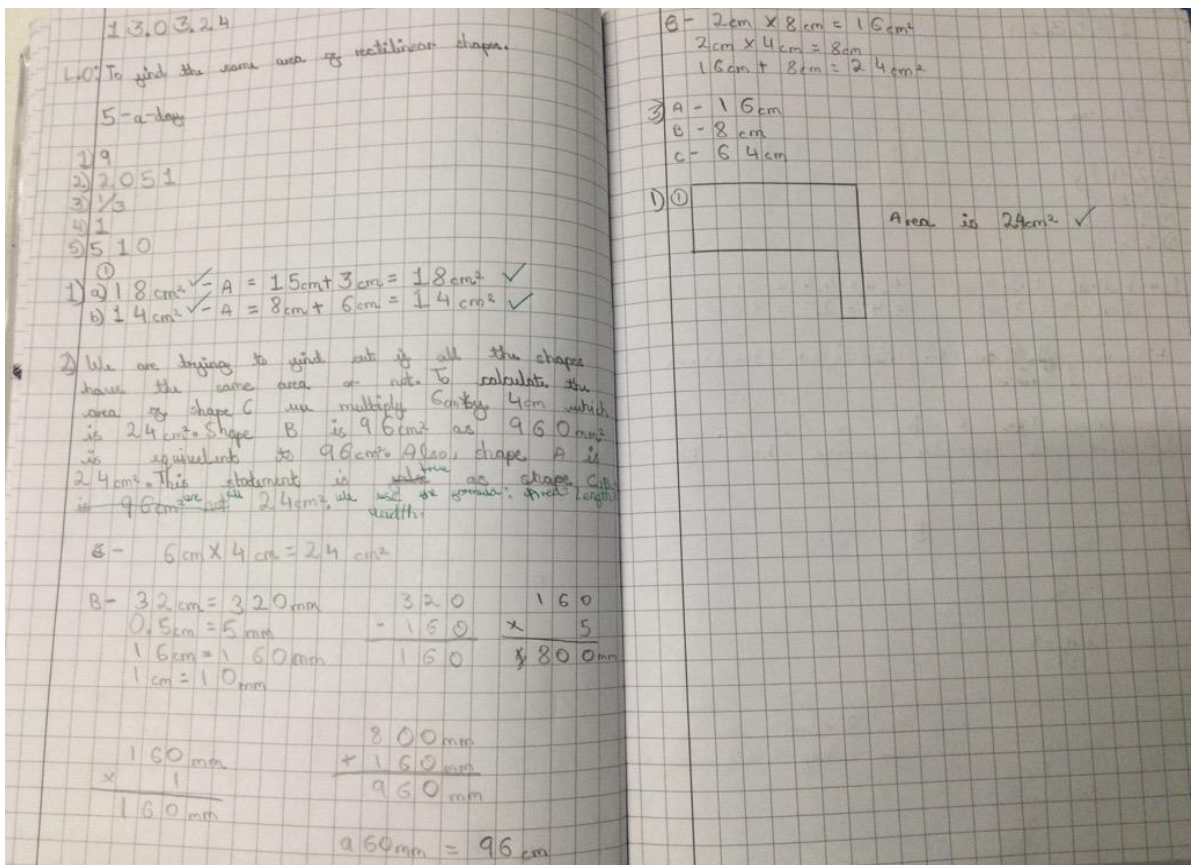 13.03.24
L.O: To find the same area of rectilinear shapes.
5-a-day
1) 9
2) 2,051
3) 1/3
4) 1
5) 510
①
1) a) 18cm² ✓ - A = 15cm + 3cm = 18cm² ✓
b) 14cm² ✓ - A = 8cm + 6cm = 14cm² ✓
2) We are trying to find out if all the shapes
have the same area or not. To calculate the
area of shape C we multiply 6cm by 4cm which
is 24cm². Shape B is 96cm² as 960mm²
is equivalent to 96cm². Also, shape A is
24cm². This statement is true as shape C,B,
is 96cm² are not all 24cm². We use the formula: Area = Length x
width.
6cm X 4cm = 24 cm²
B- 32cm = 320mm 320 160
0.5cm = 5mm - 160 x 5
16cm = 160mm 160 800mm
1cm = 10mm
160mm 800mm
x 1 + 160mm
160mm 960mm
960mm = 96cm
B- 2cm X 8cm = 16cm²
2cm X 4cm = 8cm
16cm + 8cm = 24cm²
3) A - 16cm
B - 8cm
C - 64cm
1) ①
Area is 24cm² ✓